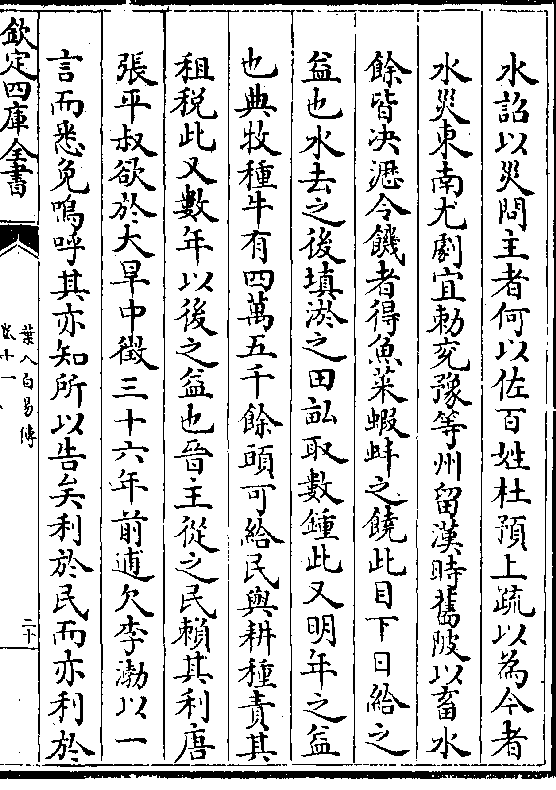 水詔以災問主者何以佐百姓杜預上疏以為今者
水災東南尤劇宜勅兖豫等州留漢時舊陂以畜水
餘皆决瀝令饑者得魚菜蝦蚌之饒此目下日給之
益也水去之後填淤之田畆取數鍾此又明年之益
也典牧種牛有四萬五千餘頭可給民與耕種責其
租税此又數年以後之益也晉主從之民賴其利唐
張平叔欲於大旱中徵三十六年前逋欠李渤以一
言而悉免嗚呼其亦知所以告矣利於民而亦利於
欽定四庫全書
葉八白易傳
卷十一
二十